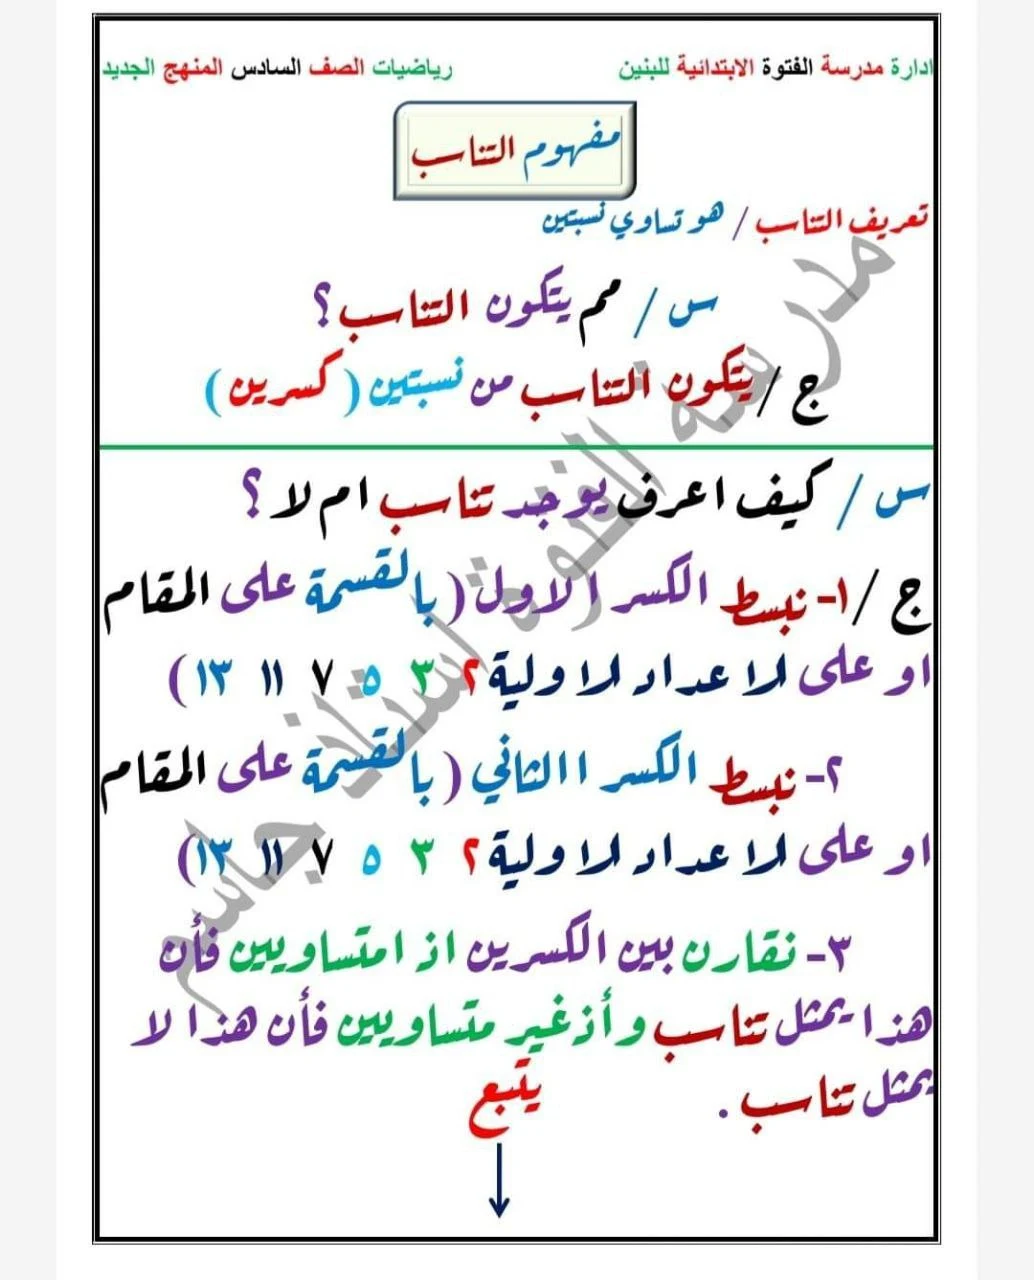 ادارة مدرسة الفتوة الابتدائية للبنين رياضيات الصف السادس المنهج الجديد
مفهوم التناسب
تعريف التناسب / هو تساوي نسبتين
س / مم يتكون التناسب؟
ج / يتكون التناسب من نسبتين ( كسرين )
س / كيف اعرف يوجد تناسب ام لا ؟
ج / ١- نبسط الكسر الاول ( بالقسمة على المقام
او على الاعداد الاولية ٢ ٣ ٥ ٧ ١١ ١٣ )
٢- نبسط الكسر االثاني ( بالقسمة على المقام
او على الاعداد الاولية ٢ ٣ ٥ ٧ ١١ ١٣)
٣- نقارن بين الكسرين اذ امتساويين فأن
هذا يمثل تناسب وأذغير متساويين فأن هذا لا
يمثل تناسب .
يتبع
مدرسة الفتوة استاذ جاسم